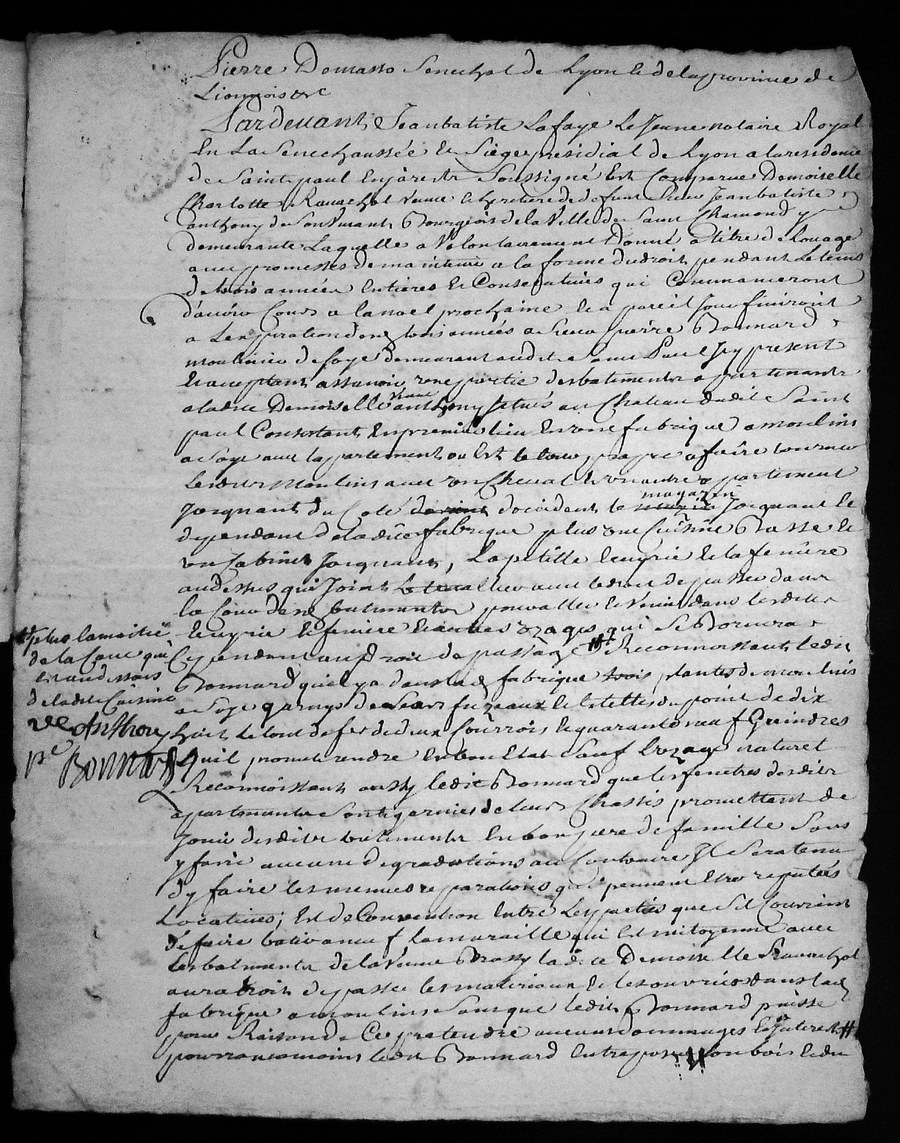 Pierre Demasso Senechal de Lyon & de la province de
Lionnois &c
Pardevant Jeanbatiste Lafaye Le Jeune notaire Royal
En La Senechaussée & Siege presidial de Lyon a la residence
de Saint paul En Jarest Soussigné Est Comparue Demoiselle
Charlotte Ravachol veuve & heritiere de defunt Sieur Jeanbatiste
anthony de Son vivant Bourgeois de la Ville de Saint Chamond y
demeurante Laquelle a volontairement Donné a titre de Louage
avec promesses de maintenir a la forme du droit, pendant le tems
de trois années Entieres & Consecutives qui Commanceront
d'avoir Cours a la noel prochaine & a pareil Jour finiront
a Lexpiration des trois années a Sieur pierre Bonnard
moulinier de Soye demeurant audit Saint Paul Icy present
& acceptant, assavoir une partie des batiments appartenants
a ladite Demoiselle veuve anthony Situés au Chateau dudit Saint
paul Consistant En premier lieu En une fabrique a moulins
a Soye avec lapartement ou Est propre a faire tourner
Lesdits Moulins avec un Cheval & un autre apartement
Joignant du Coté d'occident le magazin Joignant &
dependant de ladite fabrique plus une Cuisine Basse &
un Cabinet Joignant, La petitte Ecuyrie & la feniere
au dessus qui Joint avec le droit de passer dans
la Cour des batiments pour aller & venir dans lesdites
Ecuyrie & feniere & autres uzages qui Se Bornera
Cependant au Droit de passage # Reconnoissant ledit
Bonnard quil y a dans lad. fabrique trois plantes de moulins
a Soye garnys de Leurs fuzeaux & Cottelles du point de dix
huit le tout de fer de deux Courrois & quarante neuf Guindres
quil promet rendre En bon Etat Sauf Luzage naturel
Reconnoissant aussy ledit Bonnard que les fenetres desdits
apartements Sont garnies de leurs Chassis promettant de
Jouir desdits batiments En bon pere de famille Sans
y faire aucune degradations au Contraire Il Sera tenu
dy faire les menues reparations qui peuvent Etre reputées
Locatives; Est de Convention Entre Les parties que Sil Convient
de faire batir a neuf la muraille qui Est mitoyenne avec
les batiments de la Veuve Brossy ladite Demoiselle Ravachol
aura droit de passer les materiaux & les ouvriers dans lad.
fabrique a moulins Sans que ledit Bonnard puisse
pour Raison de Ce pretendre aucuns dommages & Interets #
pourra neanmoins ledit Bonnard Entreposer Son bois & du
# plus la moitié
de la Cour qui
Est au dessous
de ladite Cuisine
ve Anthony
pe Bonnard